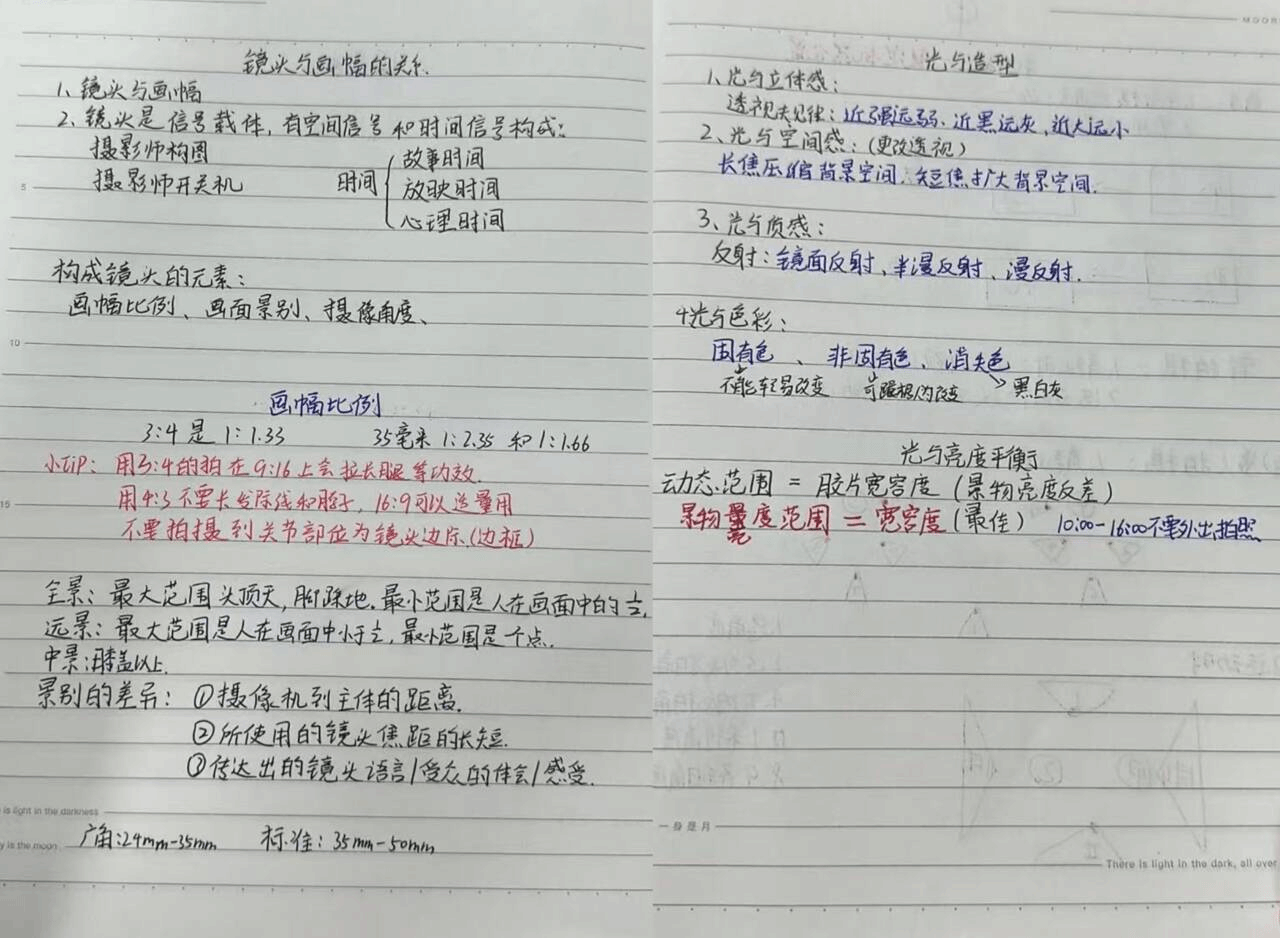 镜头与画幅的关系.
1、镜头与画幅
2、镜头是信号载体，有空间信号和时间信号构成：
摄影师构图
摄影师开关机
时间
故事时间
放映时间
心理时间
构成镜头的元素：
画幅比例、画面景别、摄像角度、
画幅比例
3:4是1:1.33 35毫米1:2.35和1:1.66
小tip: 用3:4的拍在9:16上会拉长腿等功效.
用4:3不要长发际线和脖子, 16:9可以适量用
不要拍摄到关节部位为镜头边际.(边框)
全景：最大范围头顶天，脚踩地.最小范围是人在画面中的½.
远景：最大范围是人在画面中小于½,最小范围是一个点.
中景:膝盖以上.
景别的差异：①摄像机到主体的距离.
②所使用的镜头焦距的长短.
③传达出的镜头语言/受众的体会/感受.
广角:24mm-35mm 标准：35mm-50mm
is light in the darkness
y is the moon
5
10
15
MOOR
光与造型
1、光与立体感：
透视规律：近强远弱、近黑远灰、近大远小
2、光与空间感：(更改透视)
长焦压缩背景空间.短焦扩大背景空间.
3、光与质感：
反射：镜面反射、半漫反射、漫反射.
4光与色彩：
固有色、非固有色、消失色
不能轻易改变 可跟根人为改变 黑白灰
光与亮度平衡
动态范围=胶片宽容度(景物亮度反差)
景物亮度范围=宽容度(最佳) 10:00-16:00不要外出拍照
一身是月
There is light in the dark, all over